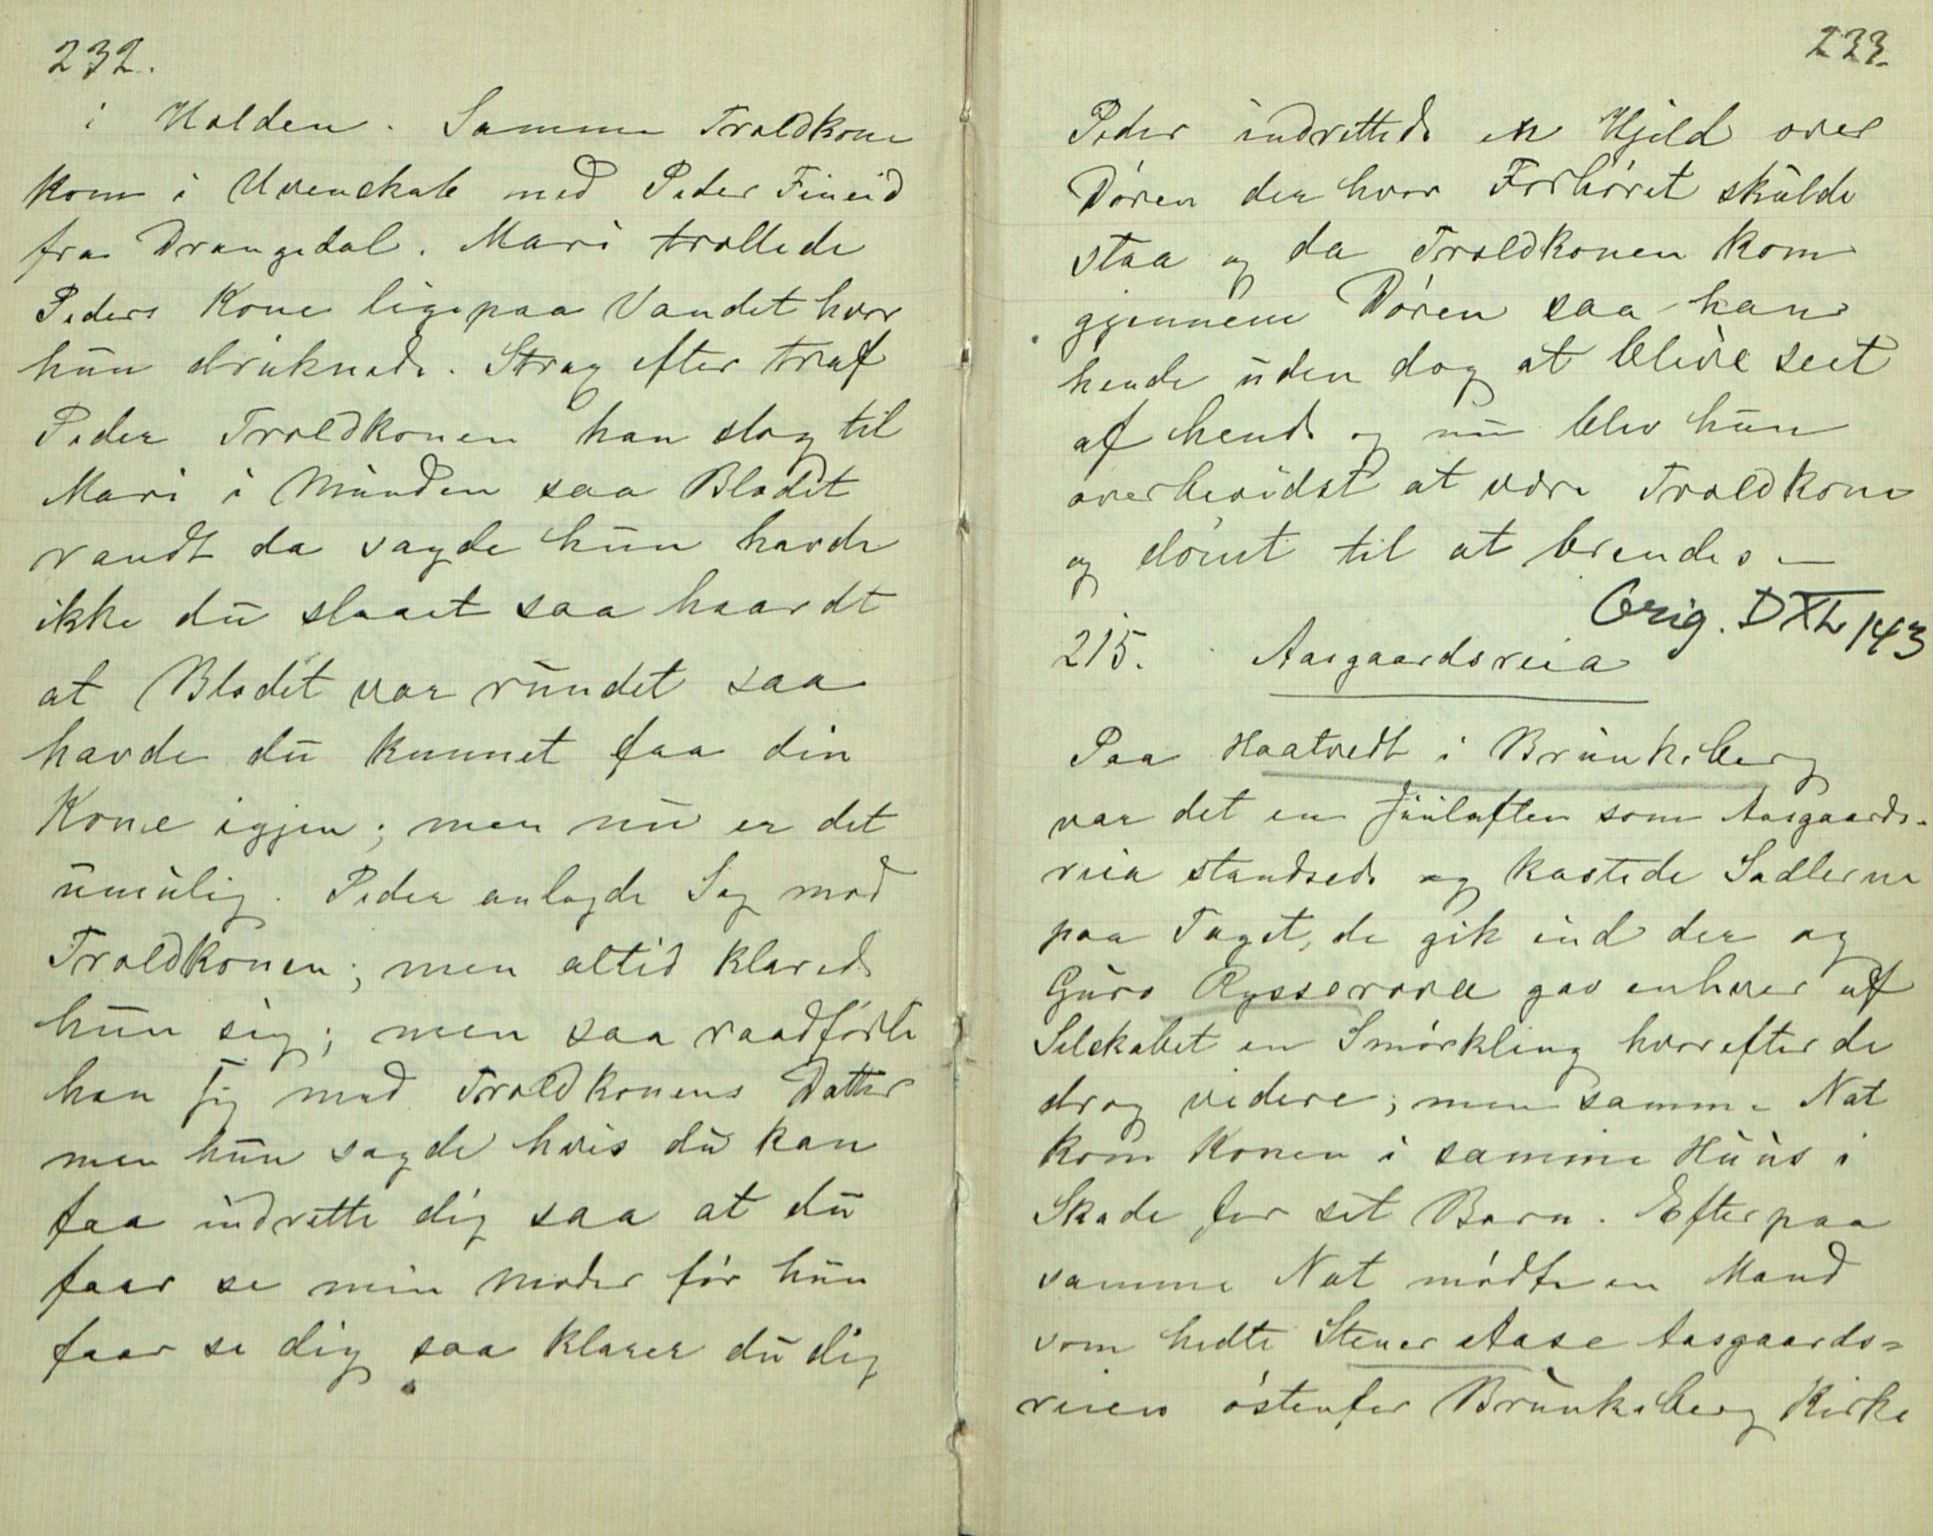 232.
i Holden. Samme Troldkone
kom i Uvenskab med Peder Fineid
fra Drangedal. Mari trollede
Peders Kone ligepaa Vandet hvor
hun druknede. Strax efter traf
Peder Troldkonen han slog til
Mari i Munden saa Blodet
randt da sagde hun havde
ikke du slaaet saa haardt
at Blodet var rundet saa
havde du kunnet faa din
Kone igjen; men nu er det
umulig. Peder anlagde Sag mod
Troldkonen; men altid klarede
hun sig; men saa raadførte
han sig med Troldkonens Datter
men hun sagde hvis du kan
faa indrette dig saa at du
faar se min Moder før hun
faar se dig saa klarer du dig
233.
Peder indrettede en Hjeld over
Døren der hvor Forhøret skulde
staa og da Troldkonen kom
gjennem Døren saa han
hende uden dog at blive seet
af hende og nu blev hun
overbevidst at være Troldkone
og dømt til at brendes —
Orig. DXL 143
215. Aasgaardsreia
Paa Haatvedt i Brunkeberg
var det en Juulaften som Aasgaards-
reia standsede og kastede Sadlerne
paa Taget, de gik ind der og
Guro Rysserova gav enhver af
Selskabet en Smørkling hvorefter de
drog videre; men samme Nat
kom Konen i samme Huus i
Skade for sit Barn. Efterpaa
samme Nat mødte en Mand
som hedte Stener Aase Aasgaards=
reien østenfor Brunkeberg Kirke